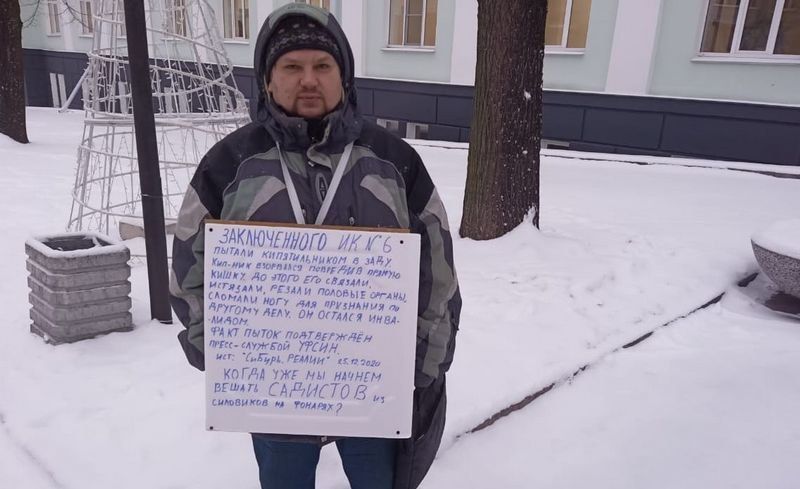 ЗАКЛЮЧЕННОГО ИК №6
ПЫТАЛИ КИПЯТИЛЬНИКОМ В ЗАДУ
КИП-НИК ВЗОРВАЛСЯ ПОВРЕДИВ ПРЯМУЮ
КИШКУ. ДО ЭТОГО ЕГО СВЯЗАЛИ,
ИСТЯЗАЛИ, РЕЗАЛИ ПОЛОВЫЕ ОРГАНЫ,
СЛОМАЛИ НОГУ ДЛЯ ПРИЗНАНИЯ ПО
ДРУГОМУ ДЕЛУ. ОН ОСТАЛСЯ ИНВА-
ЛИДОМ.
ФАКТ ПЫТОК ПОДТВЕРЖДЁН
ПРЕСС-СЛУЖБОЙ УФСИН.
ИСТ: "СИБИРЬ. РЕАЛИИ" 25.12.2020
КОГДА УЖЕ МЫ НАЧНЕМ
ВЕШАТЬ САДИСТОВ ИЗ
СИЛОВИКОВ НА ФОНАРЯХ?